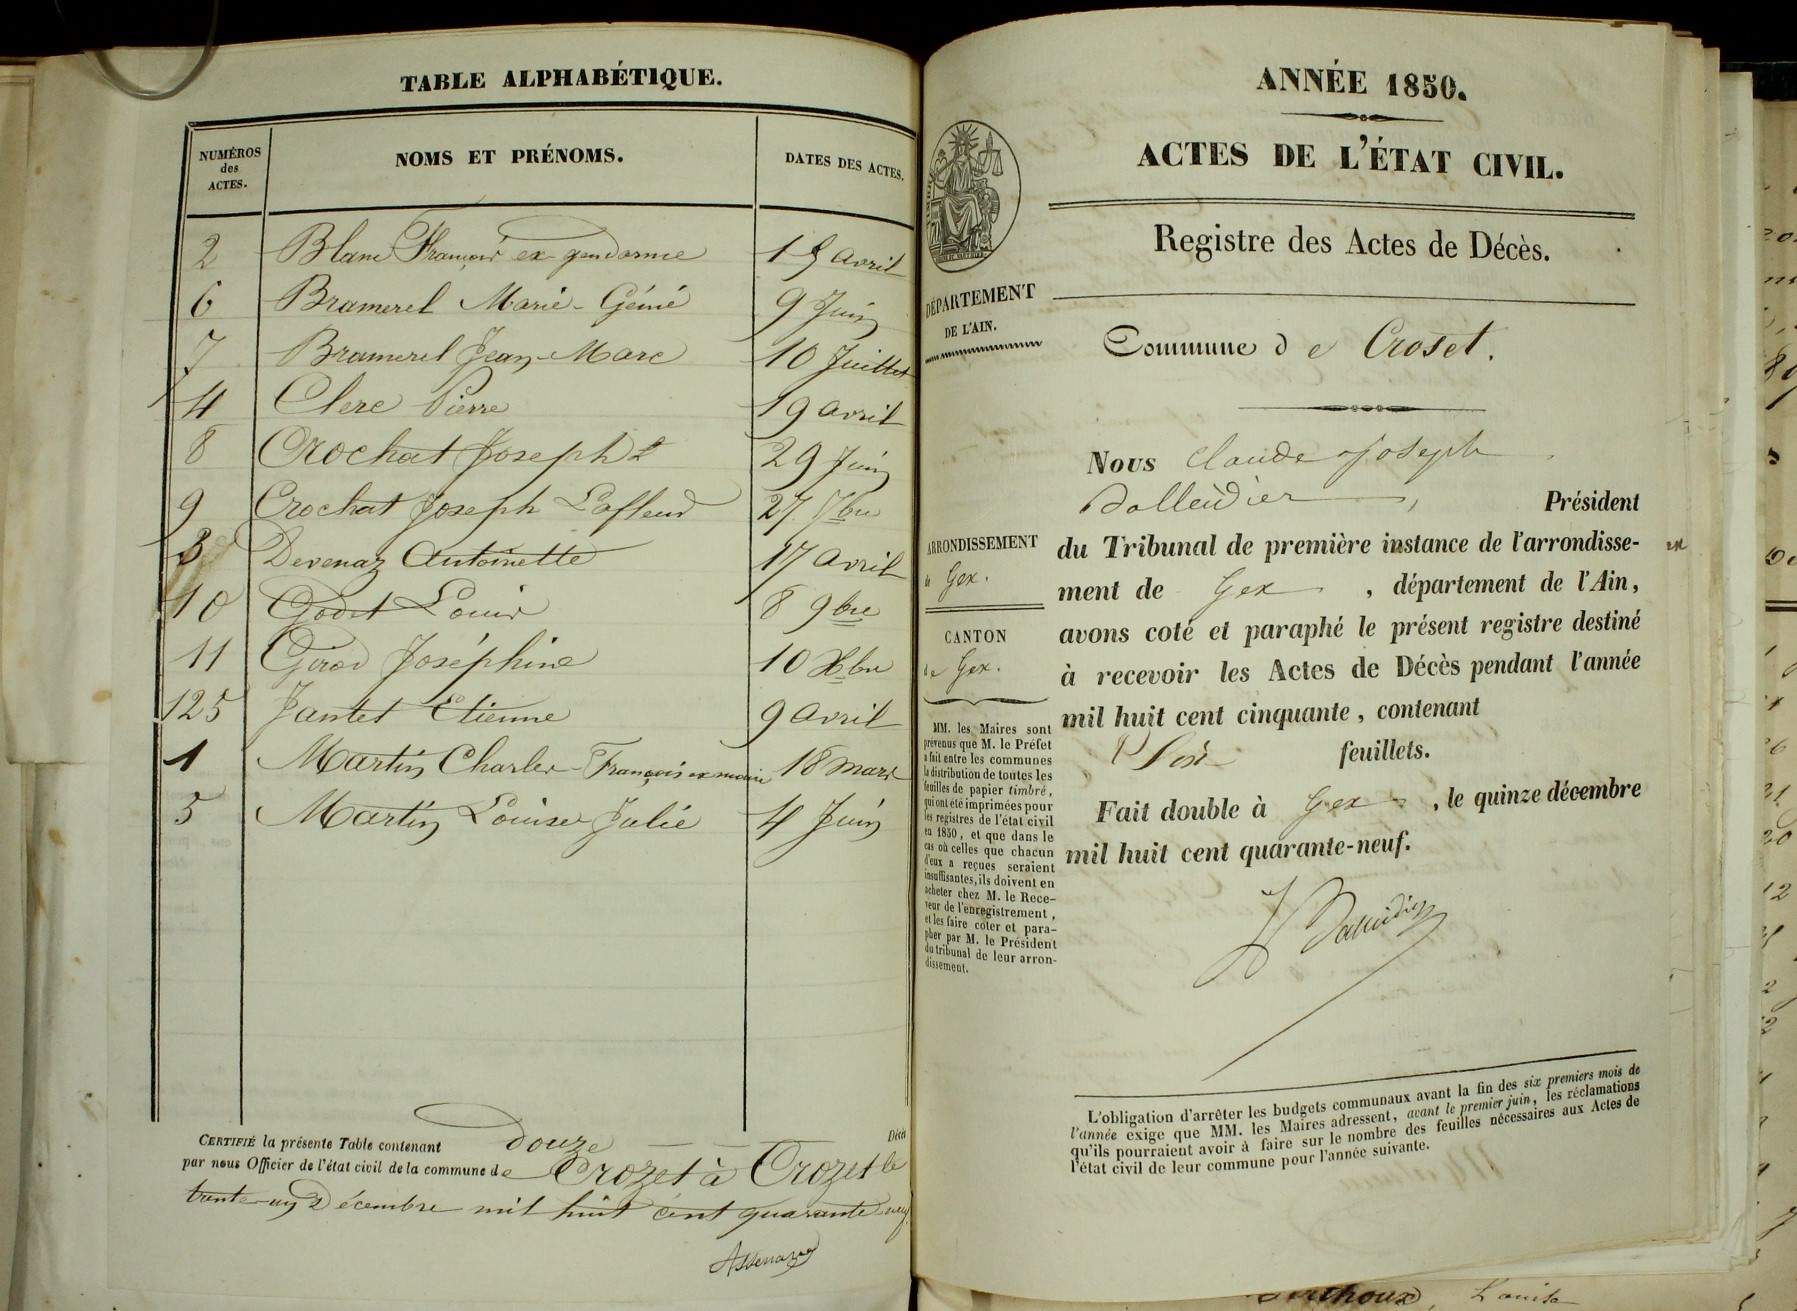 TABLE ALPHABÉTIQUE.
NUMÉROS des ACTES. NOMS ET PRÉNOMS. DATES DES ACTES.
2 Blanc François ex gendarme 15 avril
6 Bramerel Marie-Génie 9 Juin
7 Bramerel Jean-Marc 10 Juillet
4 Clerc Pierre 19 avril
8 Crochat Joseph 29 Juin
9 Crochat Joseph Lafleur 27 7bre
3 Devenaz Antoinette 17 avril
10 Godet Louis 8 9bre
11 Girod Joséphine 10 Xbre
125 Jantet Etienne 9 avril
1 Martin Charles-François ex maire 18 mars
5 Martin Louise Julie 4 Juin
CERTIFIÉ la présente Table contenant douze Décès
par nous Officier de l'état civil de la commune de Crozet à Crozet le
trente-un Décembre mil huit cent quarante neuf.
ANNÉE 1850.
ACTES DE L'ÉTAT CIVIL.
Registre des Actes de Décès.
DÉPARTEMENT
DE L'AIN.
Commune de Croset.
Nous Claude Joseph
Président
du Tribunal de première instance de l'arrondisse-
ment de Gex, département de l'Ain,
avons coté et paraphé le présent registre destiné
à recevoir les Actes de Décès pendant l'année
mil huit cent cinquante, contenant
feuillets.
Fait double à Gex, le quinze décembre
mil huit cent quarante-neuf.
ARRONDISSEMENT
de Gex.
CANTON
de Gex.
MM. les Maires sont
prévenus que M. le Préfet
a fait entre les communes
la distribution de toutes les
feuilles de papier timbré,
qui ont été imprimées pour
les registres de l'état civil
en 1850, et que dans le
cas où celles que chacun
d'eux a reçues seraient
insuffisantes, ils doivent en
acheter chez M. le Rece-
veur de l'enregistrement,
et les faire coter et para-
pher par M. le Président
du tribunal de leur arron-
dissement.
L'obligation d'arrêter les budgets communaux avant la fin des six premiers mois de
l'année exige que MM. les Maires adressent, avant le premier juin, les réclamations
qu'ils pourraient avoir à faire sur le nombre des feuilles nécessaires aux Actes de
l'état civil de leur commune pour l'année suivante.